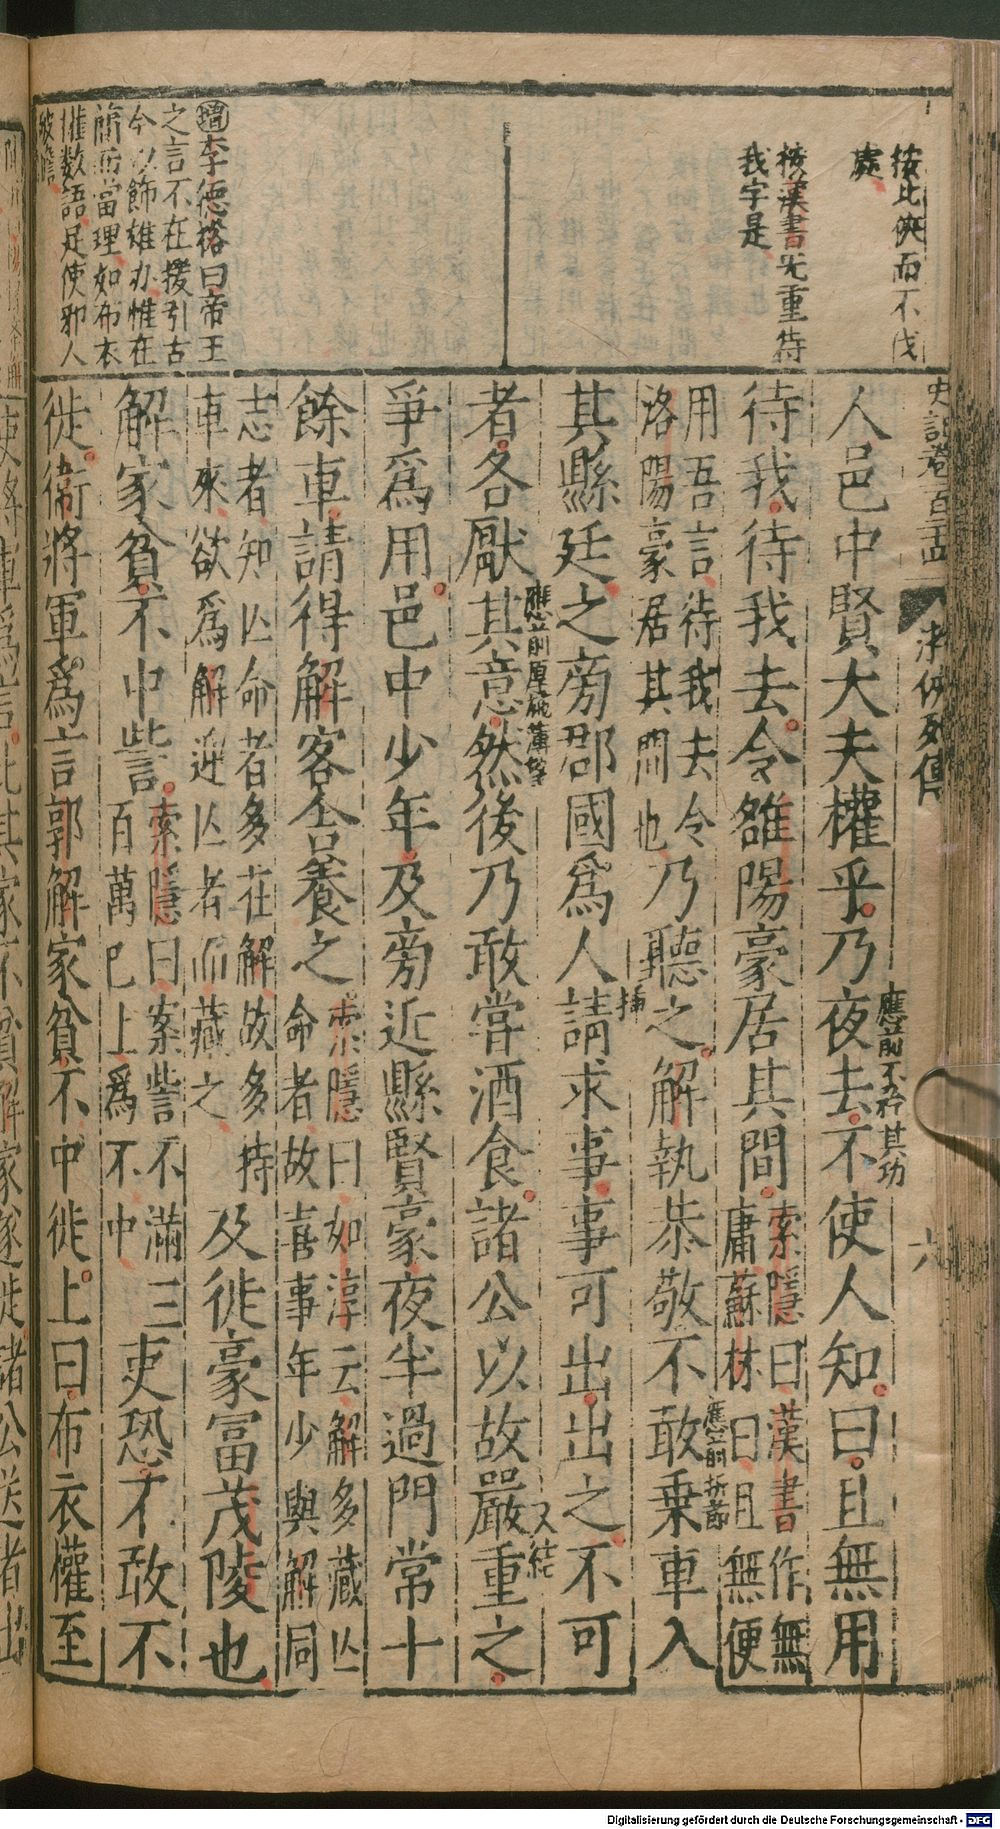 史記卷百二十四 游俠列傳 六
按此俠而不伐
處
按漢書無重待
我字是
增李德裕曰帝王
之言不在援引古
今以飾雄辦惟在
簡而當理如布衣
權數語足使邪人
破膽
人邑中賢大夫權乎乃夜去不使人知曰且無用
應前不矜其功
待我待我去令雒陽豪居其間
索隱曰漢書作無
庸蘇林曰且無便
用吾言待我去令
洛陽豪居其間也
乃聽之解執恭敬不敢乗車入
應前折節
其縣廷之旁郡國爲人請求事事可出出之不可
插
者各厭其意然後乃敢嘗酒食諸公以故嚴重之
應前厚施薄望
又結
爭爲用邑中少年及旁近縣賢豪夜半過門常十
餘車請得解客舍養之
索隱曰如淳云解多藏亾
命者故喜事年少與解同
志者知亾命者多在解故多持
車來欲爲解迎亾者而藏之
及徙豪富茂陵也
解家貧不中訾
索隱曰案訾不滿三
百萬已上爲不中
吏恐不敢不
徙衞將軍爲言郭解家貧不中徙上曰布衣權至
使將軍爲言此其家不貧解家遂徙諸公送者出
Digitalisierung gefördert durch die Deutsche Forschungsgemeinschaft - DFG